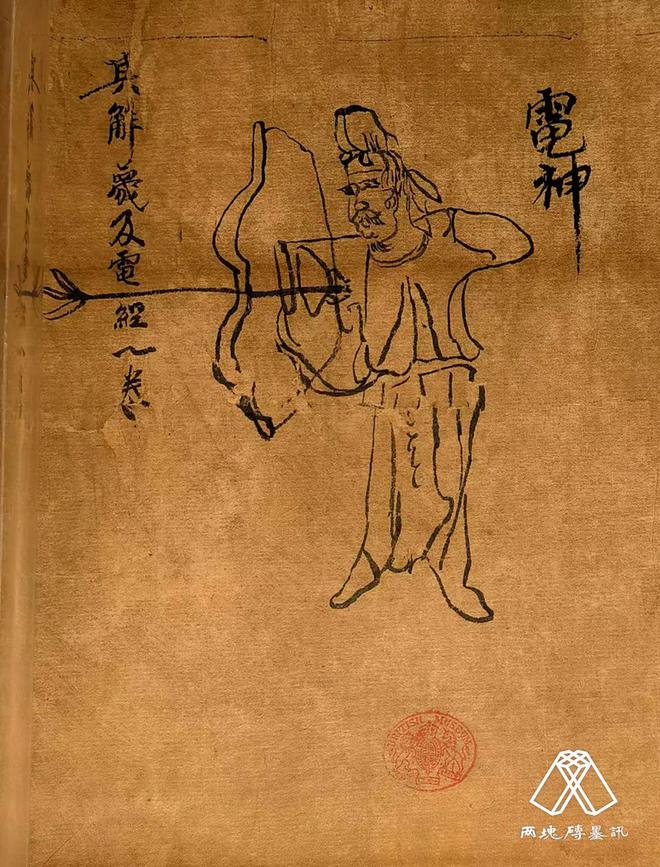 電神
其解夢及電經一卷
BRITISH MUSEUM
两塊磚墨訊